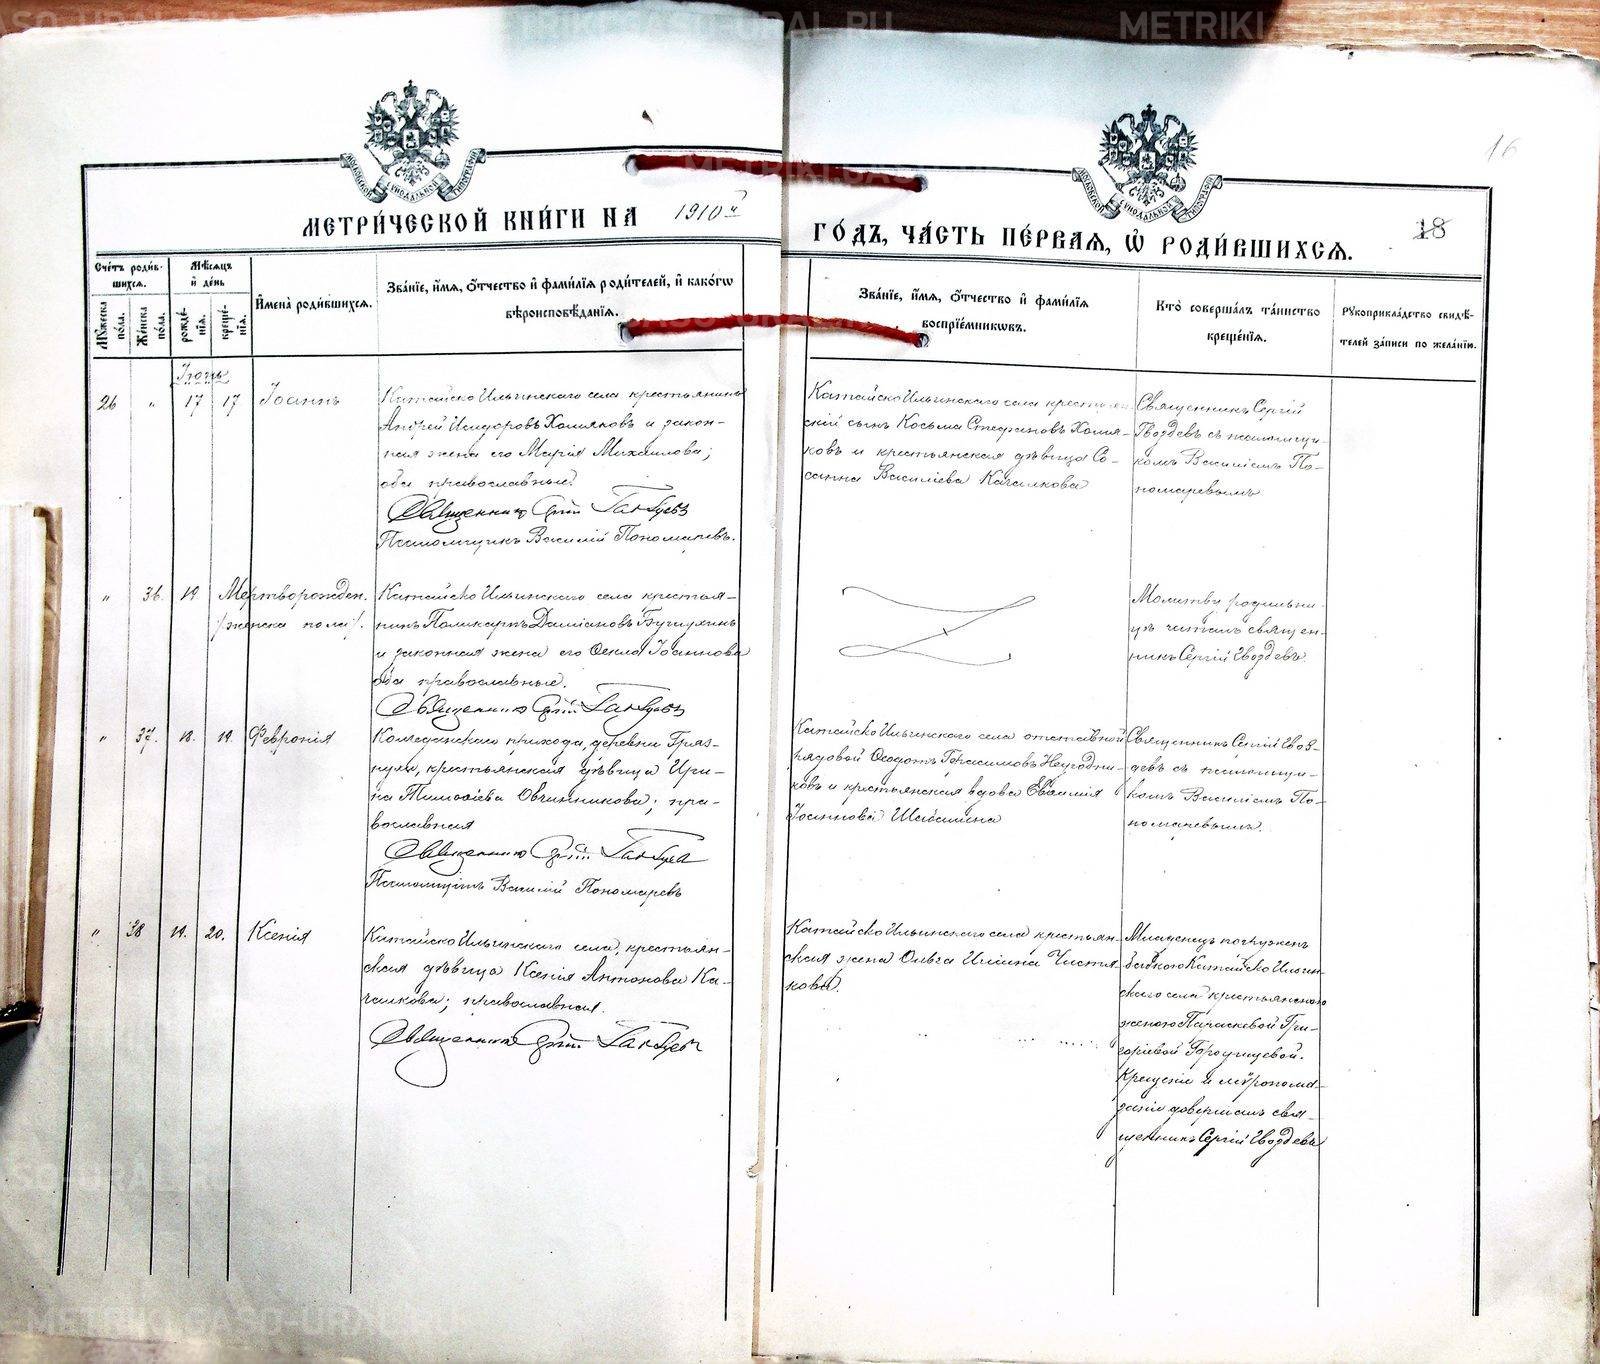 METRIKI.GASO-URAL.RU
16
МЕТРИ́ЧЕСКОЙ КНИ́ГИ НА 1910й ГО́ДЪ, ЧА́СТЬ ПЕ́РВАЯ, Ѽ РОДИ́ВШИХСЯ.
18
Сче́тъ роди́в-
шихся.
Му́жеска
по́ла.
Же́нска
по́ла.
Мѣ́сяцъ
и де́нь
рожде́-
нїя.
креще́-
нїя.
И҆мена̀ роди́вшихся.
Зва́нїе, и҆́мя, ѻ҆́тчество и҆ фами́лїя роди́телей, и҆ како́гѡ
вѣроисповѣ́данїя.
Зва́нїе, и҆́мя, ѻ҆́тчество и҆ фами́лїя
воспрїе́мниковъ.
Кто̀ соверша́лъ та́инство
креще́нїя.
Рукоприкла́дство свидѣ́-
телей за́писи по жела́нїю.
Іюнь
26 „ 17 17 Іоаннъ
Катайско Ильинскаго села крестьянинъ
Андрей Исидоровъ Хомяковъ и закон-
ная жена его Марія Михаилова;
оба православные.
Священникъ Сергій Гвоздевъ
Псаломщикъ Василій Пономаревъ.
Катайско Ильинскаго села крестьян-
скій сынъ Косьма Стефановъ Хомя-
ковъ и крестьянская дѣвица Со-
санна Василіева Качалкова
Священникъ Сергій
Гвоздевъ съ псаломщи-
комъ Василіемъ По-
номаревымъ
„ 36. 19. Мертворожден.
/женска пола/.
Катайско Ильинскаго села крестья-
нинъ Поликарпъ Даміановъ
и законная жена его Ѳекла Іоаннова
оба православные.
Священникъ Сергій Гвоздевъ
Молитву родильни-
цѣ читалъ священ-
никъ Сергій Гвоздевъ.
„ 37. 18. 19. Февронія
Колчеданскаго прихода, деревни Гряз-
нухи, крестьянская дѣвица Ири-
на Тимоѳіева Овчинникова; пра-
вославная
Священникъ Сергій Гвоздевъ
Псаломщикъ Василій Пономаревъ
Катайско Ильинскаго села отставной
рядовой Ѳеодотъ Герасимовъ Неугодни-
ковъ и крестьянская вдова Евѳимія
Іоаннова Шабалина
Священникъ Сергій Гвоз-
девъ съ псаломщи-
комъ Василіемъ По-
номаревымъ.
„ 38 19. 20. Ксенія
Катайско Ильинскаго села, крестьян-
ская дѣвица Ксенія Антонова Ка-
чалкова; православная.
Священникъ Сергій Гвоздевъ
Катайско Ильинскаго села крестьян-
ская жена Ольга Ильина Чистя-
кова.
Младенецъ погруженъ
бабкою Катайско Ильин-
скаго села крестьянскою
женою Параскевой Гри-
горіевой Городищевой.
Крещеніе и мѵропома-
заніе довершилъ свя-
щенникъ Сергій Гвоздевъ
METRIKI.GASO-URAL.RU